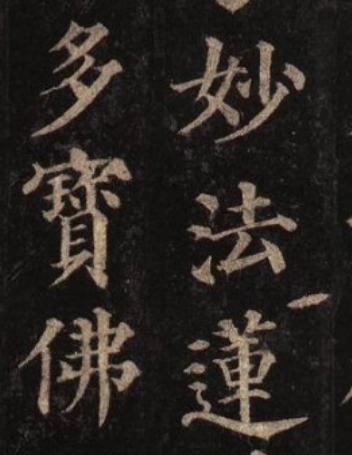 妙法蓮
多寶佛